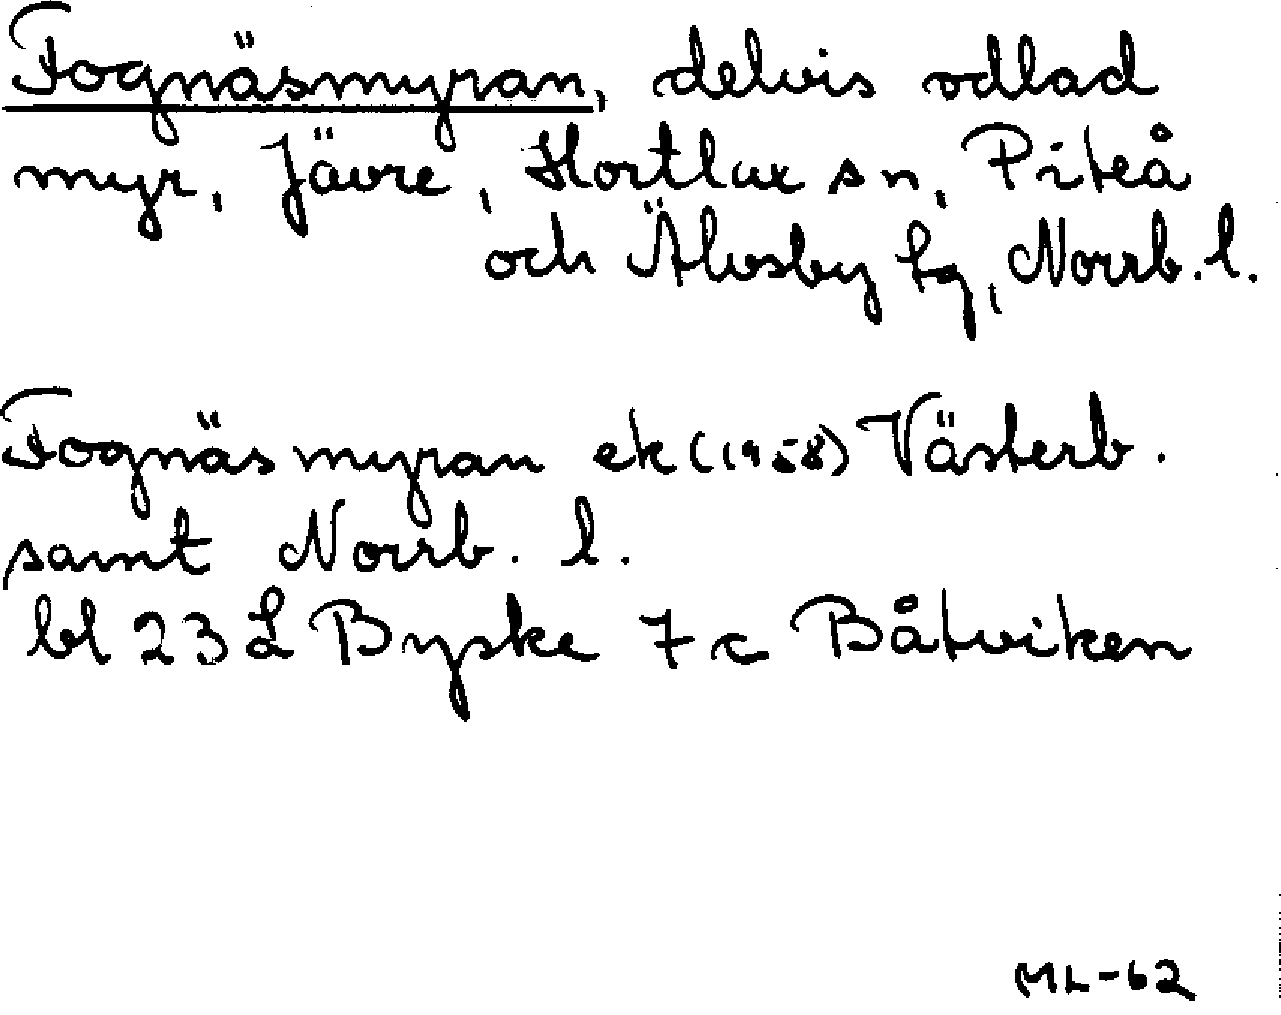 Fognäsmyran, delvis odlad
myr, Jävre, Hortlax sn, Piteå
och Älvsby tg, Norrb. l.
Fognäsmyran ek (1958) Västerb.
samt Norrb. l.
bl 23 L Byske 7 c Båtviken
ML-62